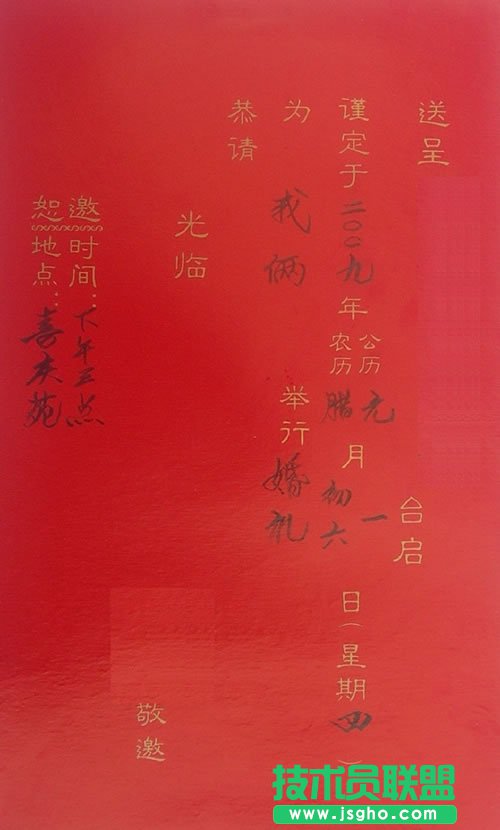 送呈 台启
谨定于二〇〇九年 公历 元 月 一 日(星期四)
农历 腊 初六
为 我俩 举行 婚礼
恭请
光临
敬邀
邀时间:下午三点
恕地点:喜庆苑
技术员联盟
www.jsgho.com